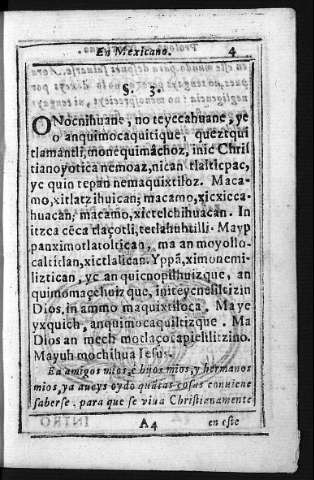 En Mexicano. 4
S. 3.
ONocnihuane, no teyccahuane, ye
o anquimocaquitique, quezqui
tlamantli, monequimachoz, inic Chris
tianoyotica nemoaz, nican tlalticpac,
yc quin tepan nemaquixtiloz. Maca-
mo, xitlatzihuican; macamo, xicxicca-
huacan; macamo, xictelchihuacan. In
itzca cẽca tlaçotli, tetlahuhtilli. Mayp
panximotlatoltican, ma an moyollo-
caltitlan, xictlalican. Yppã, ximonemi-
liztican, yc an quicnopilhuizque, an
quimomaçehuizque, initeycneliltizin
Dios, in ammo maquixtiloca. Ma ye
yxquich, anquimocaquiltizque. Ma
Dios an mech motlaçotapielilitzino.
Mayuh mochihua Iesus.
Ea amigos mios, è hijos mios, y hermanos
mios, ya aueys oydo quãtas cosas conuiene
saberse, para que se viua Christianamente
A4 en este